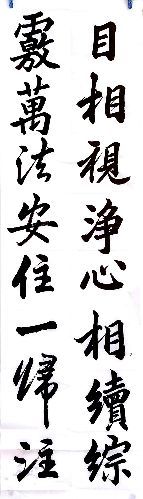 目相視浄心相續綜
覈萬法安住一歸注